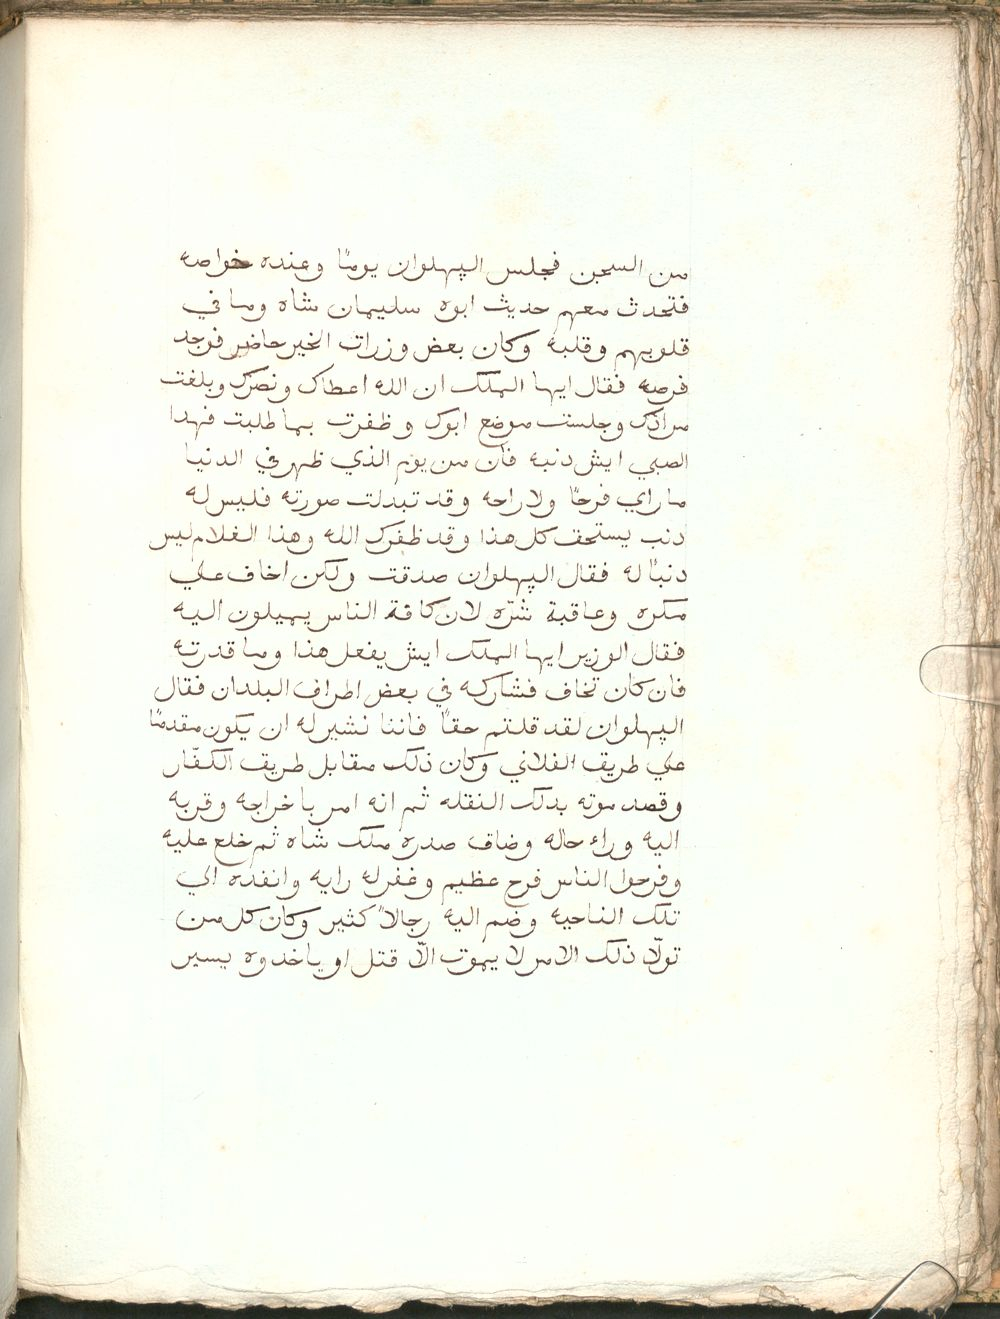 من السجن فجلس البهلوان يومًا وعنده خواصه
فتحدث معهم حديث ابوه سليمان شاه وما في
قلوبهم وقلبه وكان بعض وزرات الخير حاضر فوجد
فرصه فقال ايها الملك ان الله اعطاك ونصرك وبلغت
مرادك وجلست موضع ابوك وظفرت بما طلبت فهدا
الصبي ايش دنبه فان من يوم الذي ظهر في الدنيا
ما راي فرحًا ولا راحه وقد تبدلت صورته فليس له
دنب يستحق كل هذا وقد ظفرك الله وهذا الغلام ليس
دنبًا له فقال البهلوان صدقت ولكن اخاف علي
مكره وعاقبة شرّه لان كافة الناس يميلون اليه
فقال الوزير ايها الملك ايش يفعل هذا وما قدرته
فان كان تخاف فشاركه في بعض اطراف البلدان فقال
البهلوان لقد قلتم حقًا فاننا نشير له ان يكون مقدمًا
علي طريق الفلاني وكان ذلك مقابل طريق الكفّار
وقصد موته بدلك النقله ثم انه امر باخراجه وقربه
اليه وراء حاله وضاق صدره ملك شاه ثم خلع عليه
وفرحوا الناس فرح عظيم وغفر له رايه وانفده الي
تلك الناحيه وضم اليه رجالاً كثير وكان كل من
تولّا ذلك الامر لا يموت الّا قتل او ياخدوه يسير